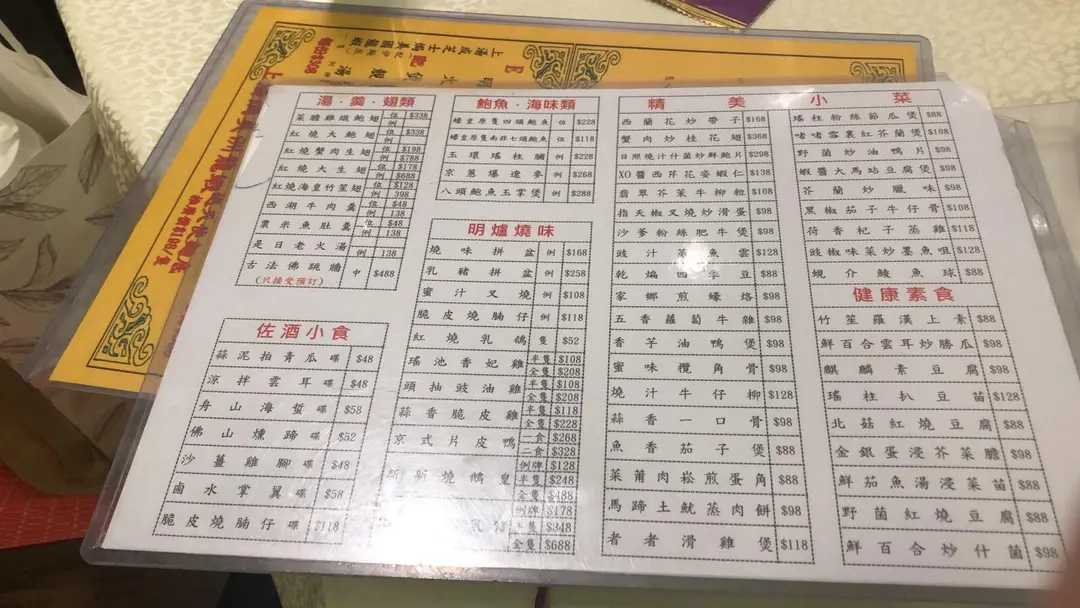 湯·羹·翅類
菜膽雞燉鮑翅 位 $338
例
紅燒大鮑翅 位 $338
例
紅燒蟹肉生翅 位 $198
例 $788
紅燒大生翅 位 $178
例 $688
紅燒海皇竹笙翅 位 $128
例 398
西湖牛肉羹 位 $48
例 138
粟米魚肚羹 位 $48
例 138
是日老火湯 例 138
古法佛跳牆 中 $488
(只接受預訂)
佐酒小食
蒜泥拍青瓜 碟 $48
涼拌雲耳 碟 $48
舟山海蜇 碟 $58
佛山燻蹄 碟 $52
沙薑雞腳 碟 $48
鹵水掌翼 碟 $58
脆皮燒腩仔 碟 $118
鮑魚·海味類
蠔皇原隻四頭鮑魚 位 $228
蠔皇原隻南非七頭鮑魚 位 $118
玉環瑤柱脯 例 $228
京蔥爆遼參 例 $268
八頭鮑魚玉掌煲 例 $288
明爐燒味
燒味拼盆 例 $168
乳豬拼盆 例 $258
蜜汁叉燒 例 $108
脆皮燒腩仔 例 $118
紅燒乳鴿 隻 $52
瑤池香妃雞 半隻 $108
全隻 $208
頭抽豉油雞 半隻 $108
全隻 $208
蒜香脆皮雞 半隻 $118
全隻 $228
京式片皮鴨 一食 $268
二食 $328
新新燒鵝皇 例牌 $128
半隻 $248
全隻 $488
乳豬 例牌 $178
半隻 $348
全隻 $688
精美小菜
西蘭花炒帶子 $168
蟹肉炒桂花翅 $368
日照燒汁什菌炒鮮鮑片 $298
XO醬西芹花姿蝦仁 $138
翡翠芥菜牛柳粒 $108
指天椒叉燒炒滑蛋 $98
沙爹粉絲肥牛煲 $98
豉汁蒸魚雲 $128
乾煸四季豆 $88
家鄉煎蠔烙 $98
五香蘿蔔牛雜 $98
香芋油鴨煲 $98
蜜味欖角骨 $98
燒汁牛仔柳 $128
蒜香一口骨 $98
魚香茄子煲 $88
菜莆肉崧煎蛋角 $88
馬蹄土魷蒸肉餅 $98
者者滑雞煲 $118
瑤柱粉絲節瓜煲 $88
啫啫雪裏紅芥蘭煲 $108
野菌炒油鴨片 $98
蝦醬大馬站豆腐煲 $98
芥蘭炒臘味 $98
黑椒茄子牛仔骨 $108
荷香杞子蒸雞 $118
豉椒味菜炒墨魚咀 $128
蜆介鯪魚球 $88
健康素食
竹笙羅漢上素 $88
鮮百合雲耳炒勝瓜 $98
麒麟素豆腐 $98
瑤柱扒豆苗 $128
北菇紅燒豆腐 $88
金銀蛋浸芥菜膽 $98
鮮茄魚湯浸菜苗 $88
野菌紅燒豆腐 $88
鮮百合炒什菌 $98